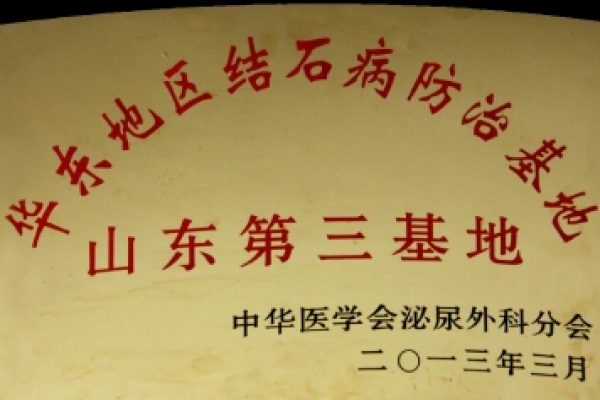 华东地区结石病防治基地
山东第三基地
中华医学会泌尿外科分会
二〇一三年三月